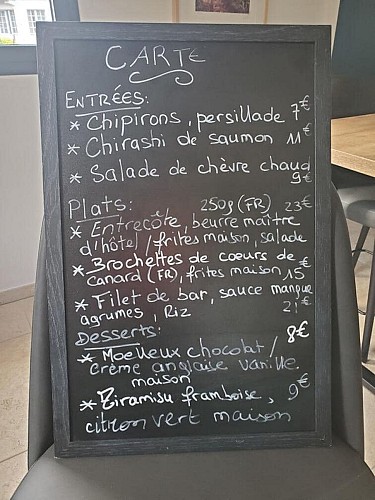 CARTE
ENTRÉES:
* Chipirons, persillade 7€
* Chirashi de saumon 11€
* Salade de chèvre chaud
9€
Plats: 250g (FR) 23€
* Entrecôte, beurre maître
d'hôtel/frites maison, salade
* Brochettes de coeurs de
canard (FR), frites maison 15€
* Filet de bar, sauce mangue
agrumes, Riz 21€
Desserts:
* Moelleux chocolat/ 8€
crème anglaise vanille
maison
* Tiramisu framboise, 9€
citron vert maison